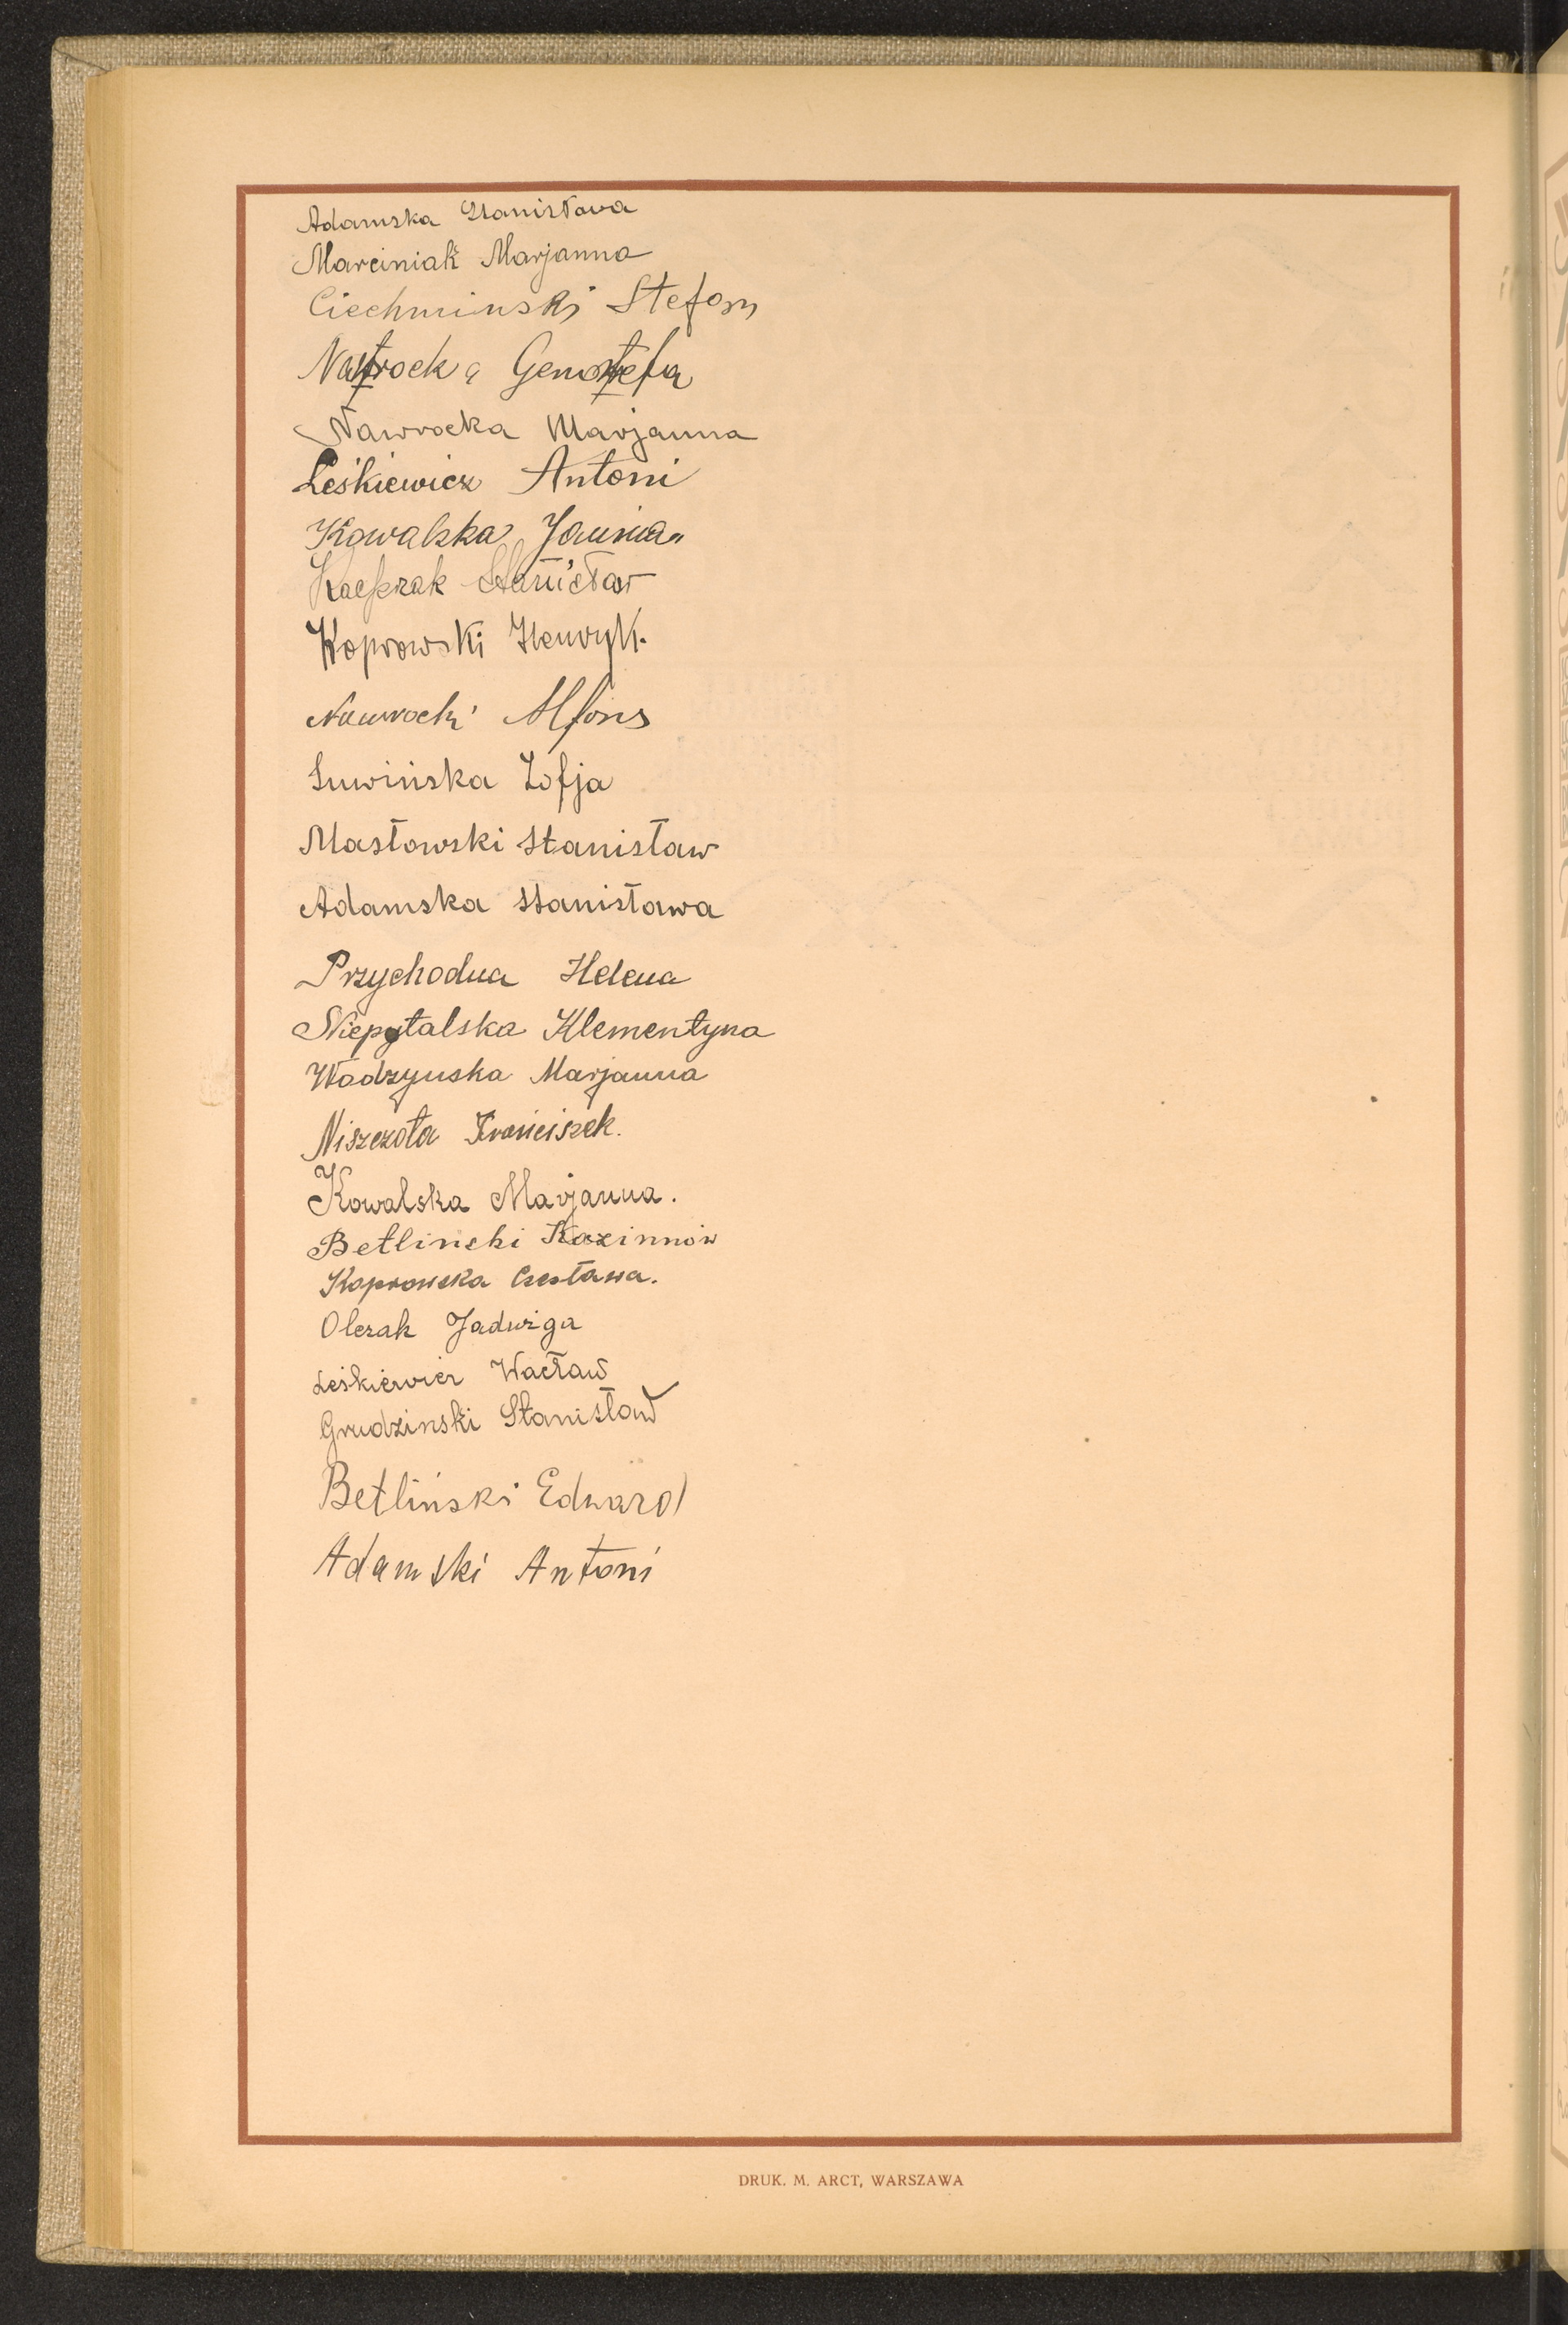 Adamska Stanisława
Marciniak Marjanna
Ciechminski Stefan
Nawrocka Genowefa
Nawrocka Marjanna
Leśkiewicz Antoni
Kowalska Janina
Kacprzak Stanisław
Koprowski Henryk.
Nawrocki Alfons
Suwińska Zofja
Masłowski Stanisław
Adamska Stanisława
Przychodna Helena
Niepytalska Klementyna
Wodzynska Marjanna
Niszczota Franciszek.
Kowalska Marjanna.
Betlinski Kazimierz
Koprowska Czesława.
Olczak Jadwiga
Leśkiewicz Wacław
Grudzinski Stanisław
Betliński Edward
Adamski Antoni
DRUK. M. ARCT, WARSZAWA